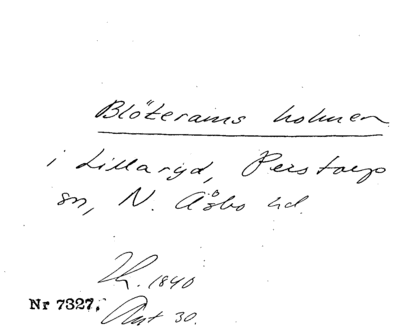 Blöterams holmen
i Lillaryd, Perstorps
sn, N. Åsbo hd.
Th. 1840
Nr 7327,
Ant 30.